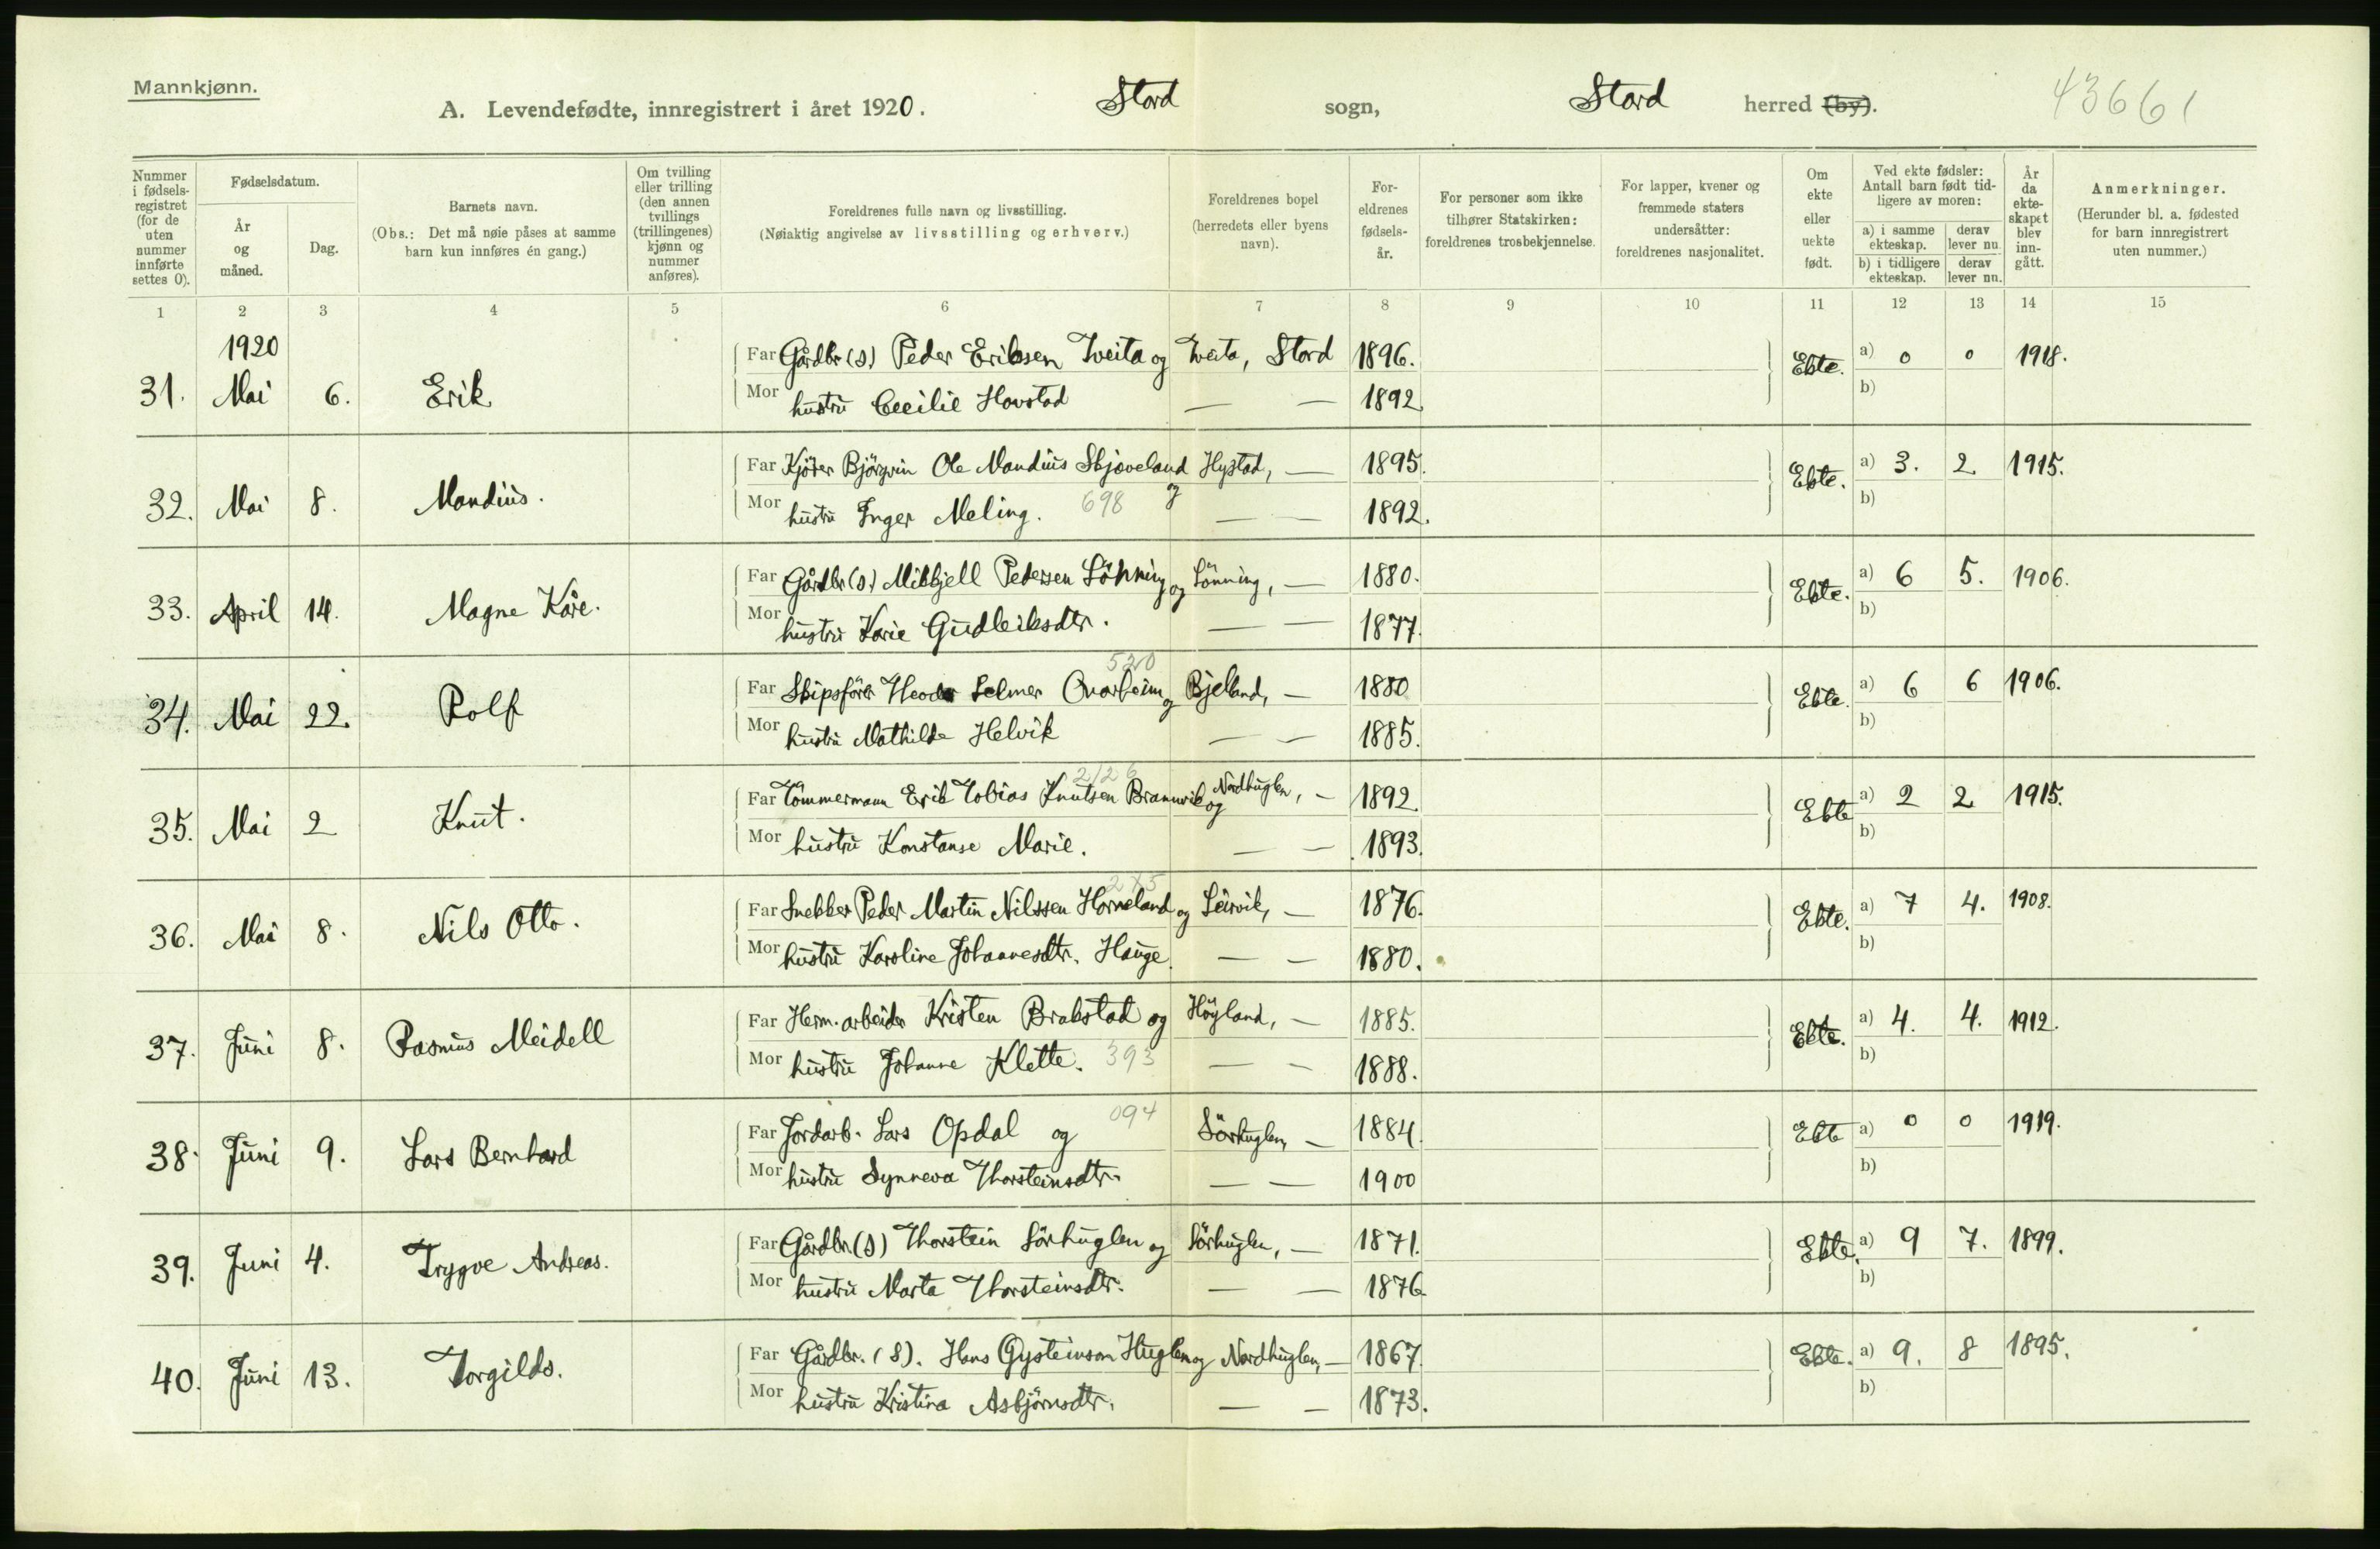 Mannkjønn.
A. Levendefødte, innregistrert i året 1920. Stord sogn, Stord herred (by). 43661
Nummer i fødselsregistret (for de uten nummer innførte settes 0).
Fødselsdatum.
År og måned.
Dag.
Barnets navn.
(Obs.: Det må nøie påses at samme barn kun innføres én gang.)
Om tvilling eller trilling (den annen tvillings (trillingenes) kjønn og nummer anføres).
Foreldrenes fulle navn og livsstilling.
(Nøiaktig angivelse av livsstilling og erhverv.)
Foreldrenes bopel (herredets eller byens navn).
Foreldrenes fødselsår.
For personer som ikke tilhører Statskirken: foreldrenes trosbekjennelse.
For lapper, kvener og fremmede staters undersåtter: foreldrenes nasjonalitet.
Om ekte eller uekte født.
Ved ekte fødsler: Antall barn født tidligere av moren:
a) i samme ekteskap. derav lever nu.
b) i tidligere ekteskap. derav lever nu.
År da ekteskapet blev inngått.
Anmerkninger.
(Herunder bl. a. fødested for barn innregistrert uten nummer.)
1 2 3 4 5 6 7 8 9 10 11 12 13 14 15
1920
31. Mai 6. Erik
Far Gårdbr (s) Peder Eriksen Tveita og Tveita, Stord 1896. Ekte. a) 0 0 1918.
Mor hustru Cecilie Hovstad — — 1892. b)
32. Mai 8. Mandius.
Far Kjører Bjørgvin Ole Mandius Skjoveland og Hystad, — 1895. Ekte. a) 3. 2 1915.
Mor hustru Inger Meling. 698 — — 1892. b)
33. April 14. Magne Kåre.
Far Gårdbr (s) Mikkjell Pedersen Lönning og Lönning, — 1880. Ekte. a) 6 5. 1906.
Mor hustru Karie Gudleiksdtr. — — 1877. b)
520
34. Mai 22. Rolf
Far Skipsförer Selmer Onarheim og Bjelland, — 1880 Ekte. a) 6 6 1906.
Mor hustru Mathilde Helvik — — 1885. b)
2126
35. Mai 2 Knut.
Far Tömmermann Erik Tobias Knutsen Brannvik og Nordhuglen, — 1892. Ekte a) 2 2 1915.
Mor hustru Konstanse Marie. — — 1893. b)
36. Mai 8. Nils Otto.
Far Snekker Peder Martin Nilssen Horneland og Leirvik, — 1876. Ekte. a) 7 4. 1908.
Mor hustru Karoline Johannesdtr. Hauge. — — 1880. b)
37. Juni 8. Rasmus Meidell
Far Herm. arbeider Kristen Brakstad og Höyland, — 1885. Ekte. a) 4. 4. 1912.
Mor hustru Johanne Klette. 393 — — 1888. b)
094
38. Juni 9. Lars Bernhard
Far Jordarb. Lars Opdal og Sörhuglen, — 1884. Ekte a) 0 0 1919.
Mor hustru Synneva Thorsteinsdtr. — — 1900 b)
39. Juni 4. Trygve Andreas.
Far Gårdbr. (s) Thorstein Sörhuglen og Sörhuglen, — 1871. Ekte. a) 9 7. 1899.
Mor hustru Marta Thorsteinsdtr. — — 1876. b)
40. Juni 13. Torgilds.
Far Gårdbr. (s). Hans Gysteinson Huglen og Nordhuglen, — 1867. Ekte. a) 9. 8 1895.
Mor hustru Kristina Asbjörnsdtr. — — 1873. b)